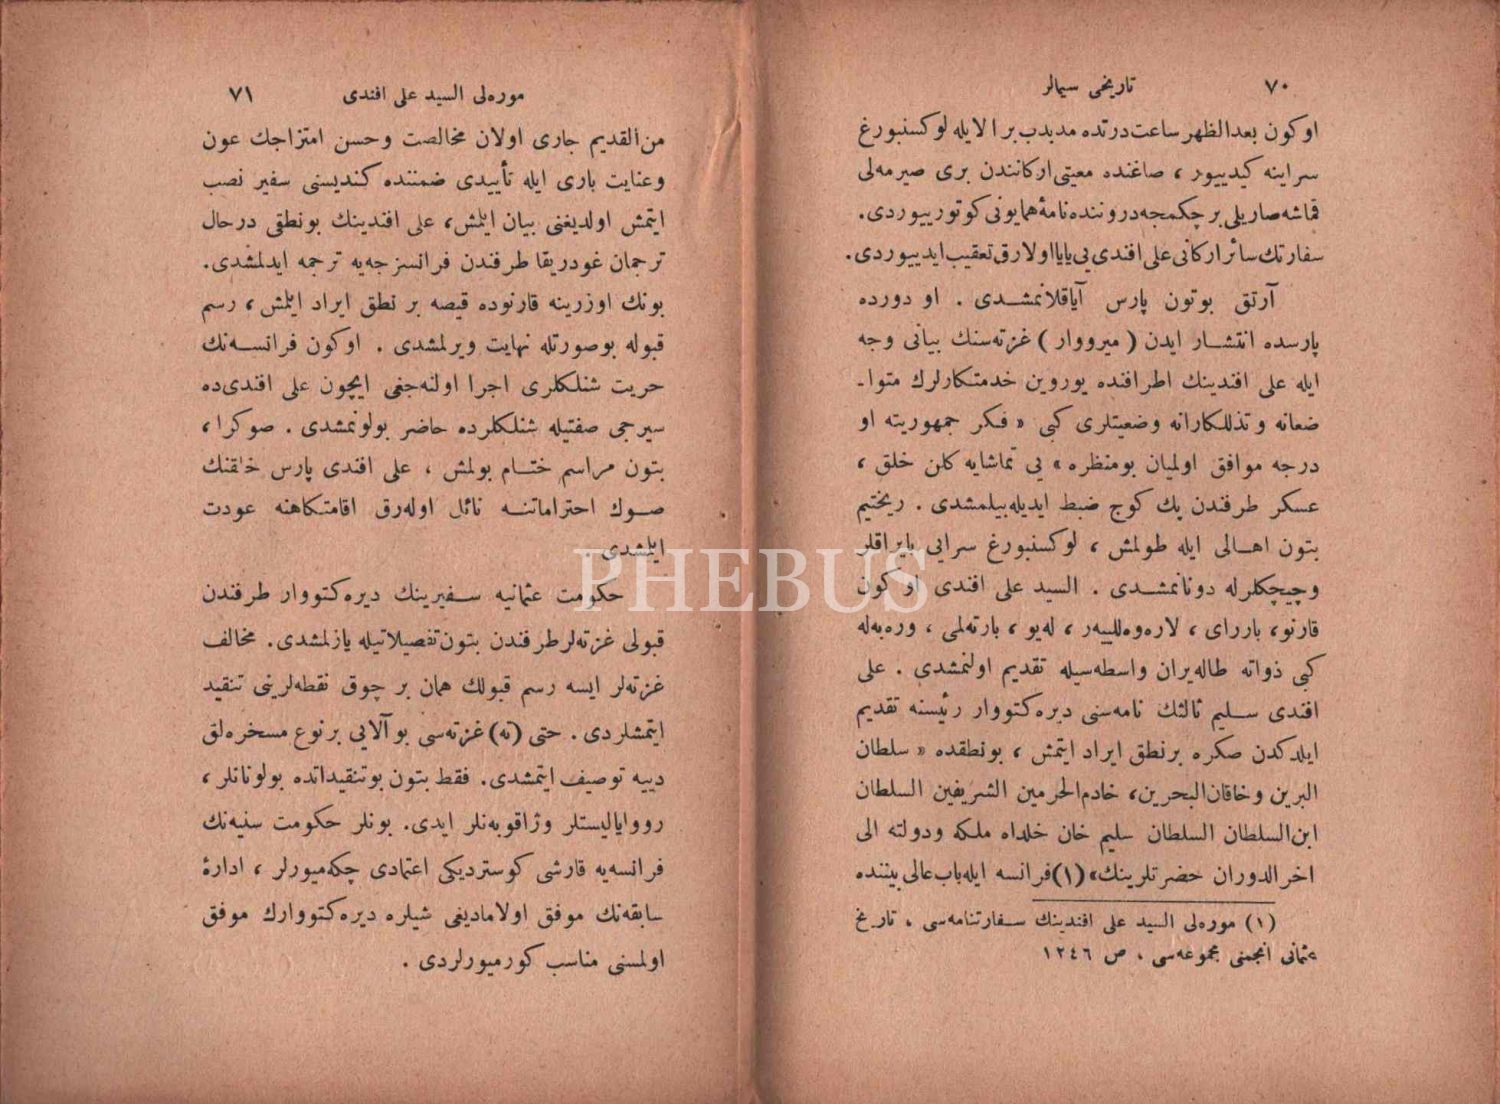 ٧٠
تاریخی سیمالر
او كون بعدالظهر ساعت درتده مدبدب بر الایله لوكسنبورغ
سراینه كیدییور ، صاغنده معیتی اركانندن بری صیرمه‌لی
قماشه صاریلی بر چكمجه دروننده نامهٔ همایونی كوتورییوردی.
سفارتك سائر اركانی علی افندی‌یی یایا اولارق تعقیب ایدییوردی.
آرتق بوتون پارس آیاقلانمشدی . او دورده
پارسده انتشار ایدن ( میرووار ) غزته‌سنك بیانی وجه
ایله علی افندینك اطرافنده یوروین خدمتكارلرك متوا-
ضعانه و تذللكارانه وضعیتلری كبی « فكر جمهوریته او
درجه موافق اولمیان بومنظره » یی تماشایه كلن خلق ،
عسكر طرفندن پك كوچ ضبط ایدیله‌بیلمشدی . ریختیم
بتون اهالی ایله طولمش ، لوكسنبورغ سرایی بایراقلر
وچیچكلرله دونانمشدی . السید علی افندی او كون
قارنو، بارراى ، لاره‌وه‌للییه‌ر ، له‌یو ، بارته‌لمی ، وره‌به‌له
كبی ذواته طاله‌یران واسطه‌سیله تقدیم اولنمشدی . علی
افندی سلیم ثالثك نامه‌سنی دیره‌كتووار رئیسنه تقدیم
ایلدكدن صكره برنطق ایراد ایتمش ، بونطقده « سلطان
البرین وخاقان البحرین، خادم الحرمین الشریفین السلطان
ابن السلطان السلطان سلیم خان خلداه ملكه ودولته الى
اخر الدوران حضرتلرینك» (١) فرانسه ایله‌باب عالی بیننده
(١) موره‌لی السید علی افندینك سفارتنامه‌سی ، تاریخ
عثمانی انجمنی مجموعه‌سی ، ص ١٢٤٦
موره‌لی السید علی افندی
٧١
من القدیم جاری اولان مخالصت وحسن امتزاجك عون
وعنایت باری ایله تأییدی ضمننده كندیسنی سفیر نصب
ایتمش اولدیغنی بیان ایلمش، علی افندینك بونطقی درحال
ترجمان غودریقا طرفندن فرانسزجه‌یه ترجمه ایدلمشدی.
بونك اوزرینه قارنوده قیصه بر نطق ایراد ایلمش ، رسم
قبوله بوصورتله نهایت ویرلمشدی . اوكون فرانسه‌نك
حریت شنلكلری اجرا اولنه‌جغی ایچون علی افندی‌ده
سیرجی صفتیله شنلكلرده حاضر بولونمشدی . صوكرا ،
بتون مراسم ختام بولمش ، علی افندی پارس خلقنك
صوك احتراماتنه نائل اوله‌رق اقامتكاهنه عودت
ایلمشدی .
حكومت عثمانیه سفیرینك دیره‌كتووار طرفندن
قبولی غزته‌لر طرفندن بتون تفصیلاتیله یازلمشدی. مخالف
غزته‌لر ایسه رسم قبولك همان بر چوق نقطه‌لرینی تنقید
ایتمشلردی . حتی (ته) غزته‌سی بو آلایی برنوع مسخره‌لق
دییه توصیف ایتمشدی. فقط بتون بوتنقیداتده بولونانلر ،
روواىالیستلر وژاقوبه‌نلر ایدی. بونلر حكومت سنیه‌نك
فرانسه‌یه قارشی كوستردیكی اعتمادی چكه‌میورلر ، ادارهٔ
سابقه‌نك موفق اولامادیغی شیلره دیره‌كتووارك موفق
اولمسنی مناسب كورمیورلردی .
PHEBUS